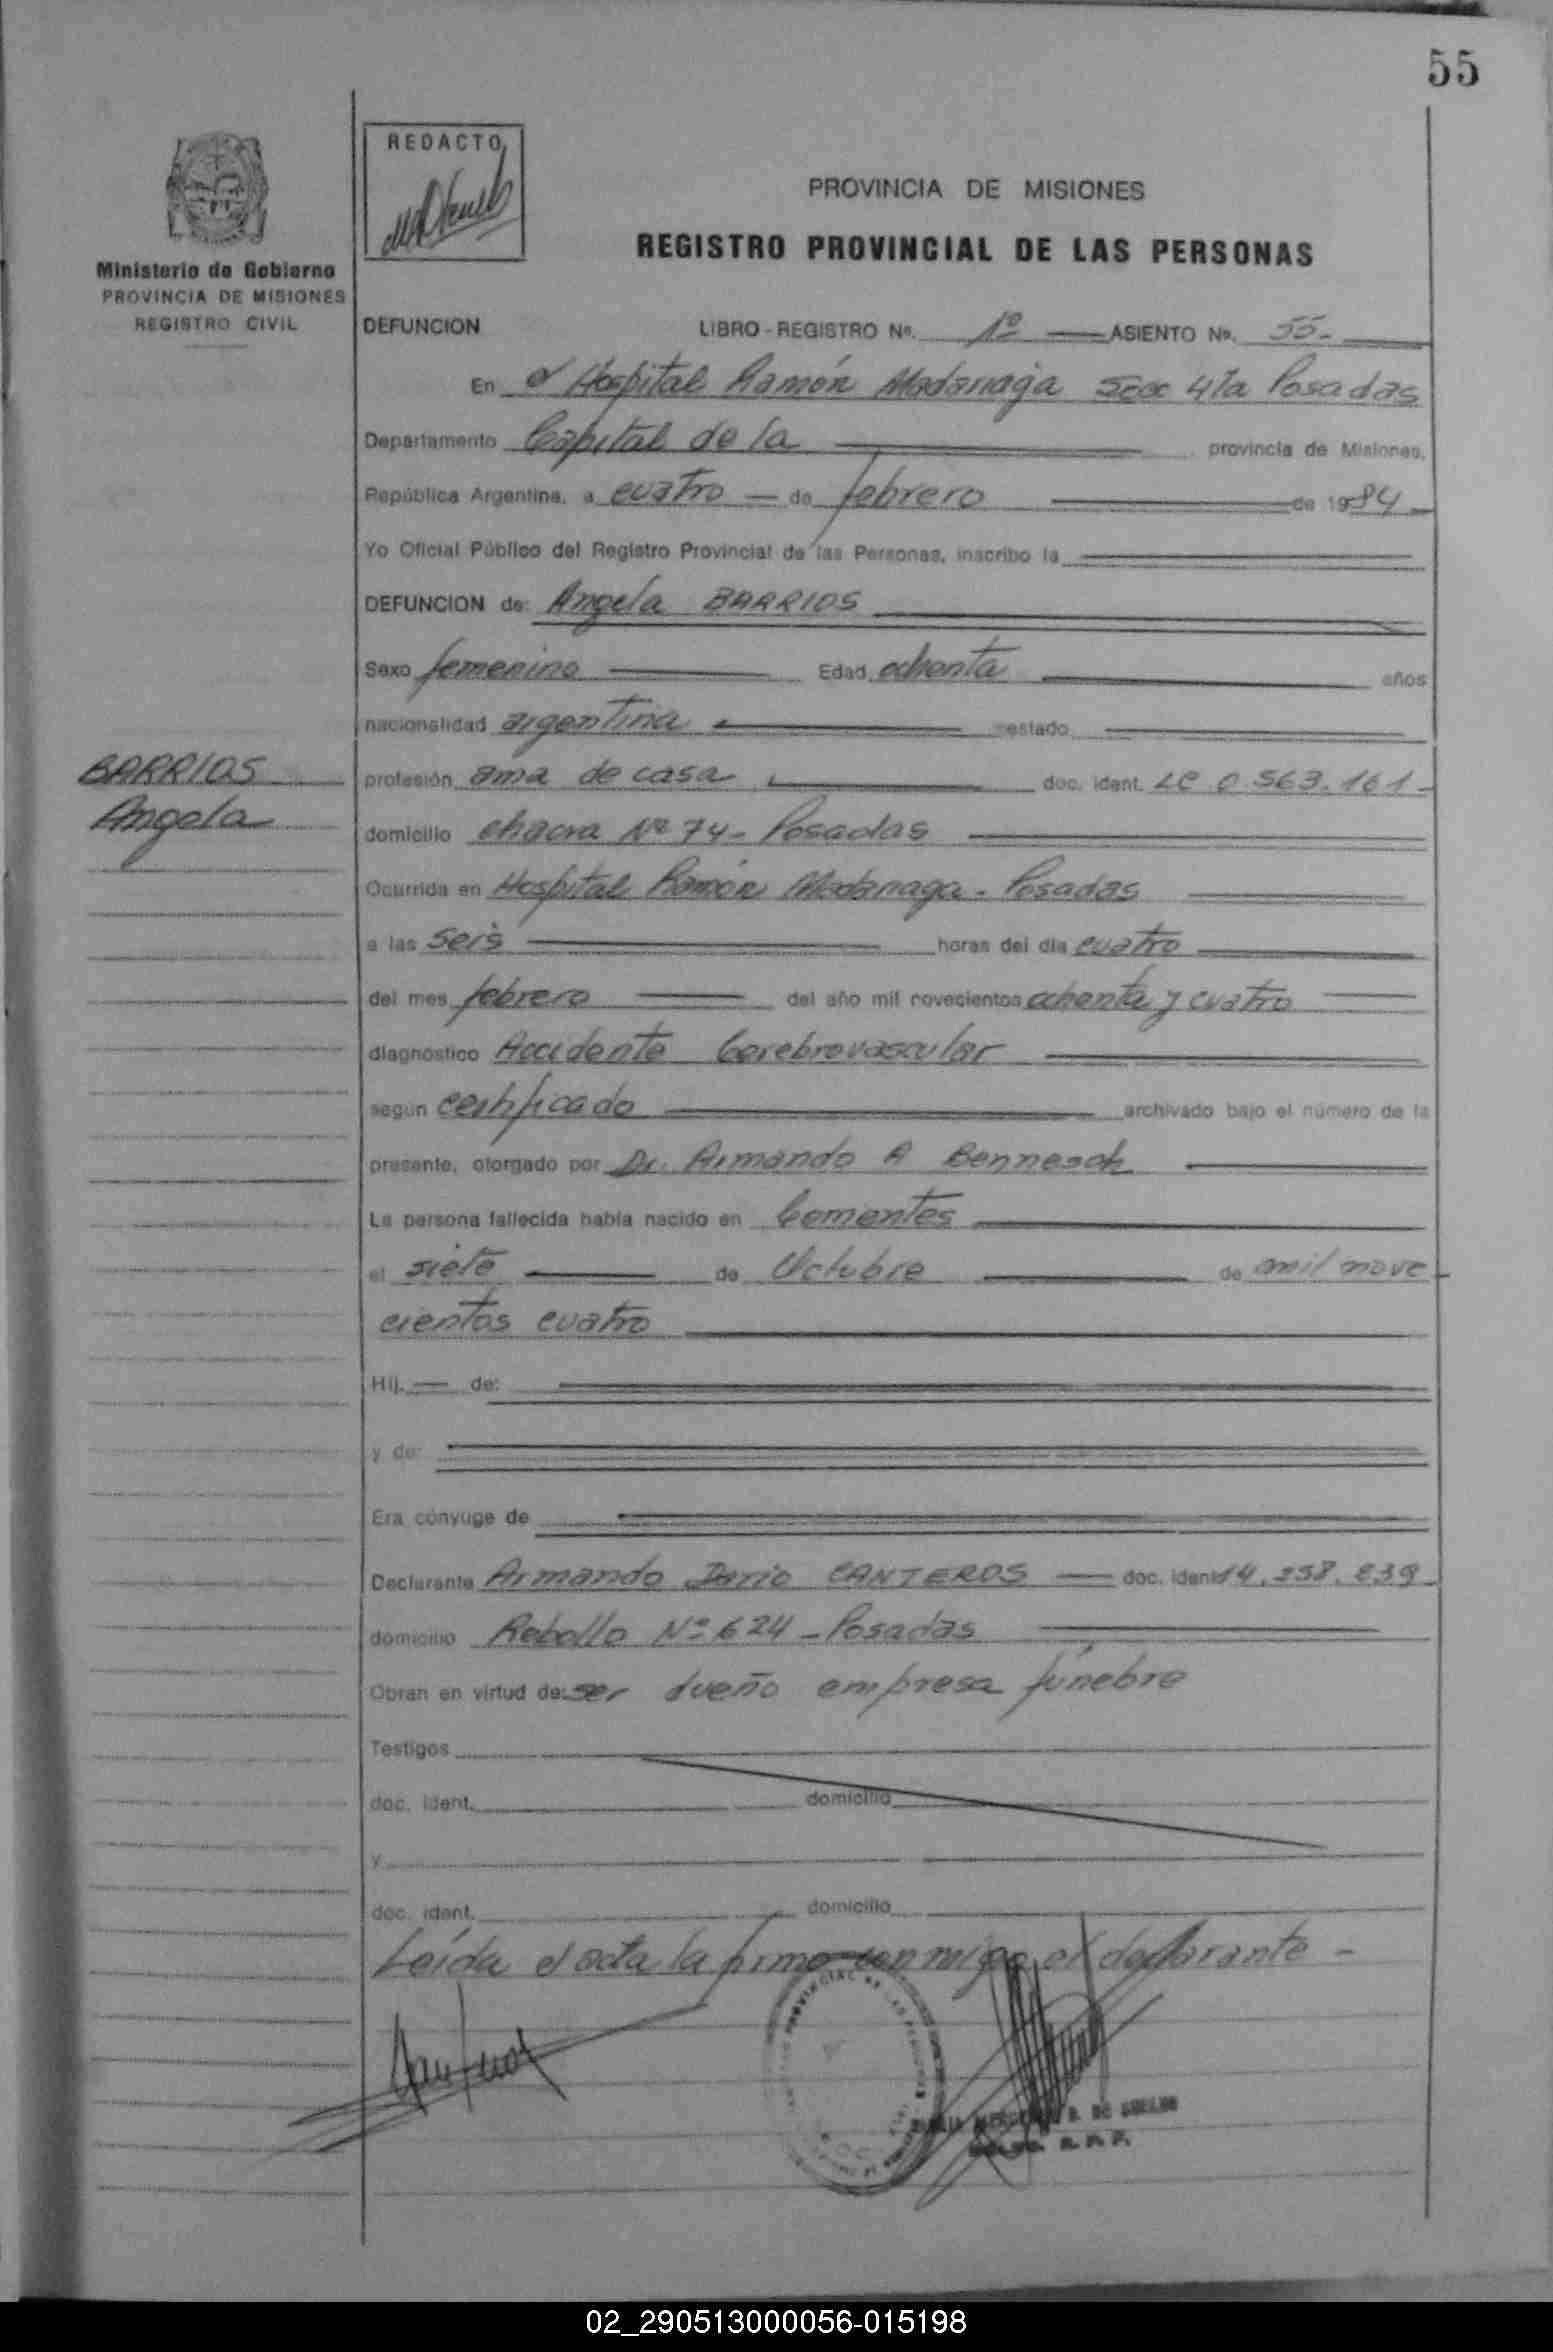 55
REDACTO
PROVINCIA DE MISIONES
REGISTRO PROVINCIAL DE LAS PERSONAS
Ministerio de Gobierno
PROVINCIA DE MISIONES
REGISTRO CIVIL
DEFUNCION LIBRO - REGISTRO Nº. 1º ASIENTO Nº. 55-
En el Hospital Ramón Madariaga Secc 4ta Posadas
Departamento Capital de la provincia de Misiones,
República Argentina, a cuatro — de febrero de 1984
Yo Oficial Público del Registro Provincial de las Personas, inscribo la
DEFUNCION de: Angela BARRIOS
Sexo femenino Edad ochenta años
nacionalidad argentina estado
BARRIOS
Angela
profesión ama de casa doc. ident. LC 0.563.161-
domicilio chacra Nº 74- Posadas
Ocurrida en Hospital Ramón Madariaga - Posadas
a las seis horas del día cuatro
del mes febrero del año mil novecientos ochenta y cuatro
diagnóstico Accidente Cerebrovascular
según certificado archivado bajo el número de la
presente, otorgado por Dr. Armando A Bennesch
La persona fallecida había nacido en Corrientes
el siete de Octubre de mil nove
cientos cuatro
Hij. — de:
y de:
Era cónyuge de
Declarante Armando Dario CANTEROS — doc. ident 14.258.839
domicilio Rebollo Nº 624 - Posadas
Obran en virtud de: ser dueño empresa fúnebre
Testigos
doc. ident. domicilio
y
doc. ident. domicilio
Leída el acta la firma conmigo el declarante -
02_290513000056-015198